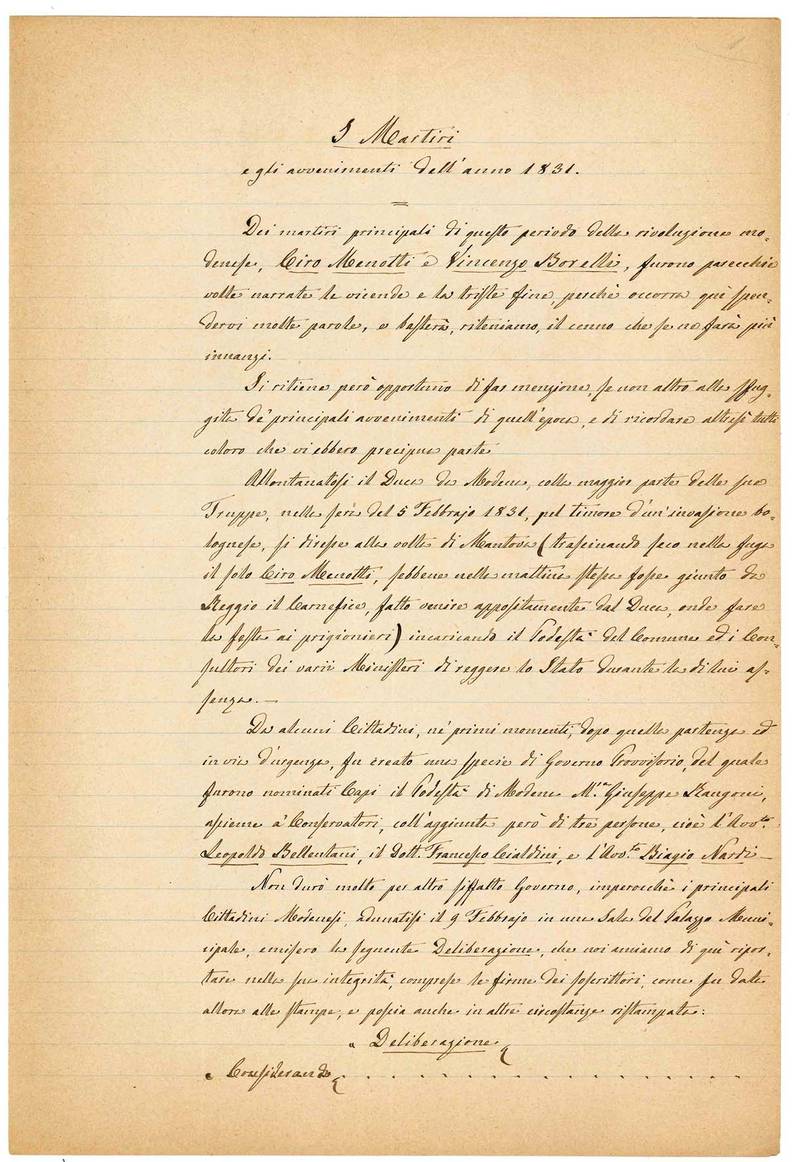 I Martiri
e gli avvenimenti dell'anno 1831.
=
Dei martiri principali di questo periodo della rivoluzione mo-
denese, Ciro Menotti e Vincenzo Borelli, furono parecchie
volte narrate le vicende e la triste fine, perchè occorra quì spen-
dervi molte parole, e basterà, riteniamo, il cenno che se ne farà più
innanzi.
Si ritiene però opportuno di far menzione, se non altro alla sfug-
gita de' principali avvenimenti di quell'epoca, e di ricordare altresì tutti
coloro che vi ebbero precipua parte
Allontanatosi il Duca da Modena, colla maggior parte delle sue
Truppe, nella sera del 5 Febbrajo 1831, pel timore d'un'invasione bo-
lognese, si diresse alla volta di Mantova (trascinando seco nella fuga
il solo Ciro Menotti, sebbene nella mattina stessa fosse giunto da
Reggio il Carnefice, fatto venire appositamente dal Duca, onde fare
la festa ai prigionieri) incaricando il Podestà del Comune ed i Con-
sultori dei varii Ministeri di reggere lo Stato durante la di lui as-
senza. —
Da alcuni Cittadini, ne' primi momenti, dopo quella partenza ed
in via d'urgenza, fu creato una specie di Governo Provvisorio, del quale
furono nominati Capi il Podestà di Modena M.se Giuseppe Rangoni,
assieme a' Conservatori, coll'aggiunta però di tre persone, cioè l'Avv.to
Leopoldo Bellentani, il Dott. Francesco Cialdini, e l'Avv.to Biagio Nardi —
Non durò molto per altro siffatto Governo, imperocchè i principali
Cittadini Modenesi, adunatisi il 9 Febbrajo in una Sala del Palazzo Muni-
cipale, emisero la seguente Deliberazione, che noi amiamo di quì ripor-
tare nella sua integrità, comprese le firme dei soscrittori, come fu data
allora alle stampe, e poscia anche in altre circostanze ristampata:
" Deliberazione
" Considerando . . . . . . . . . . . . . . . .